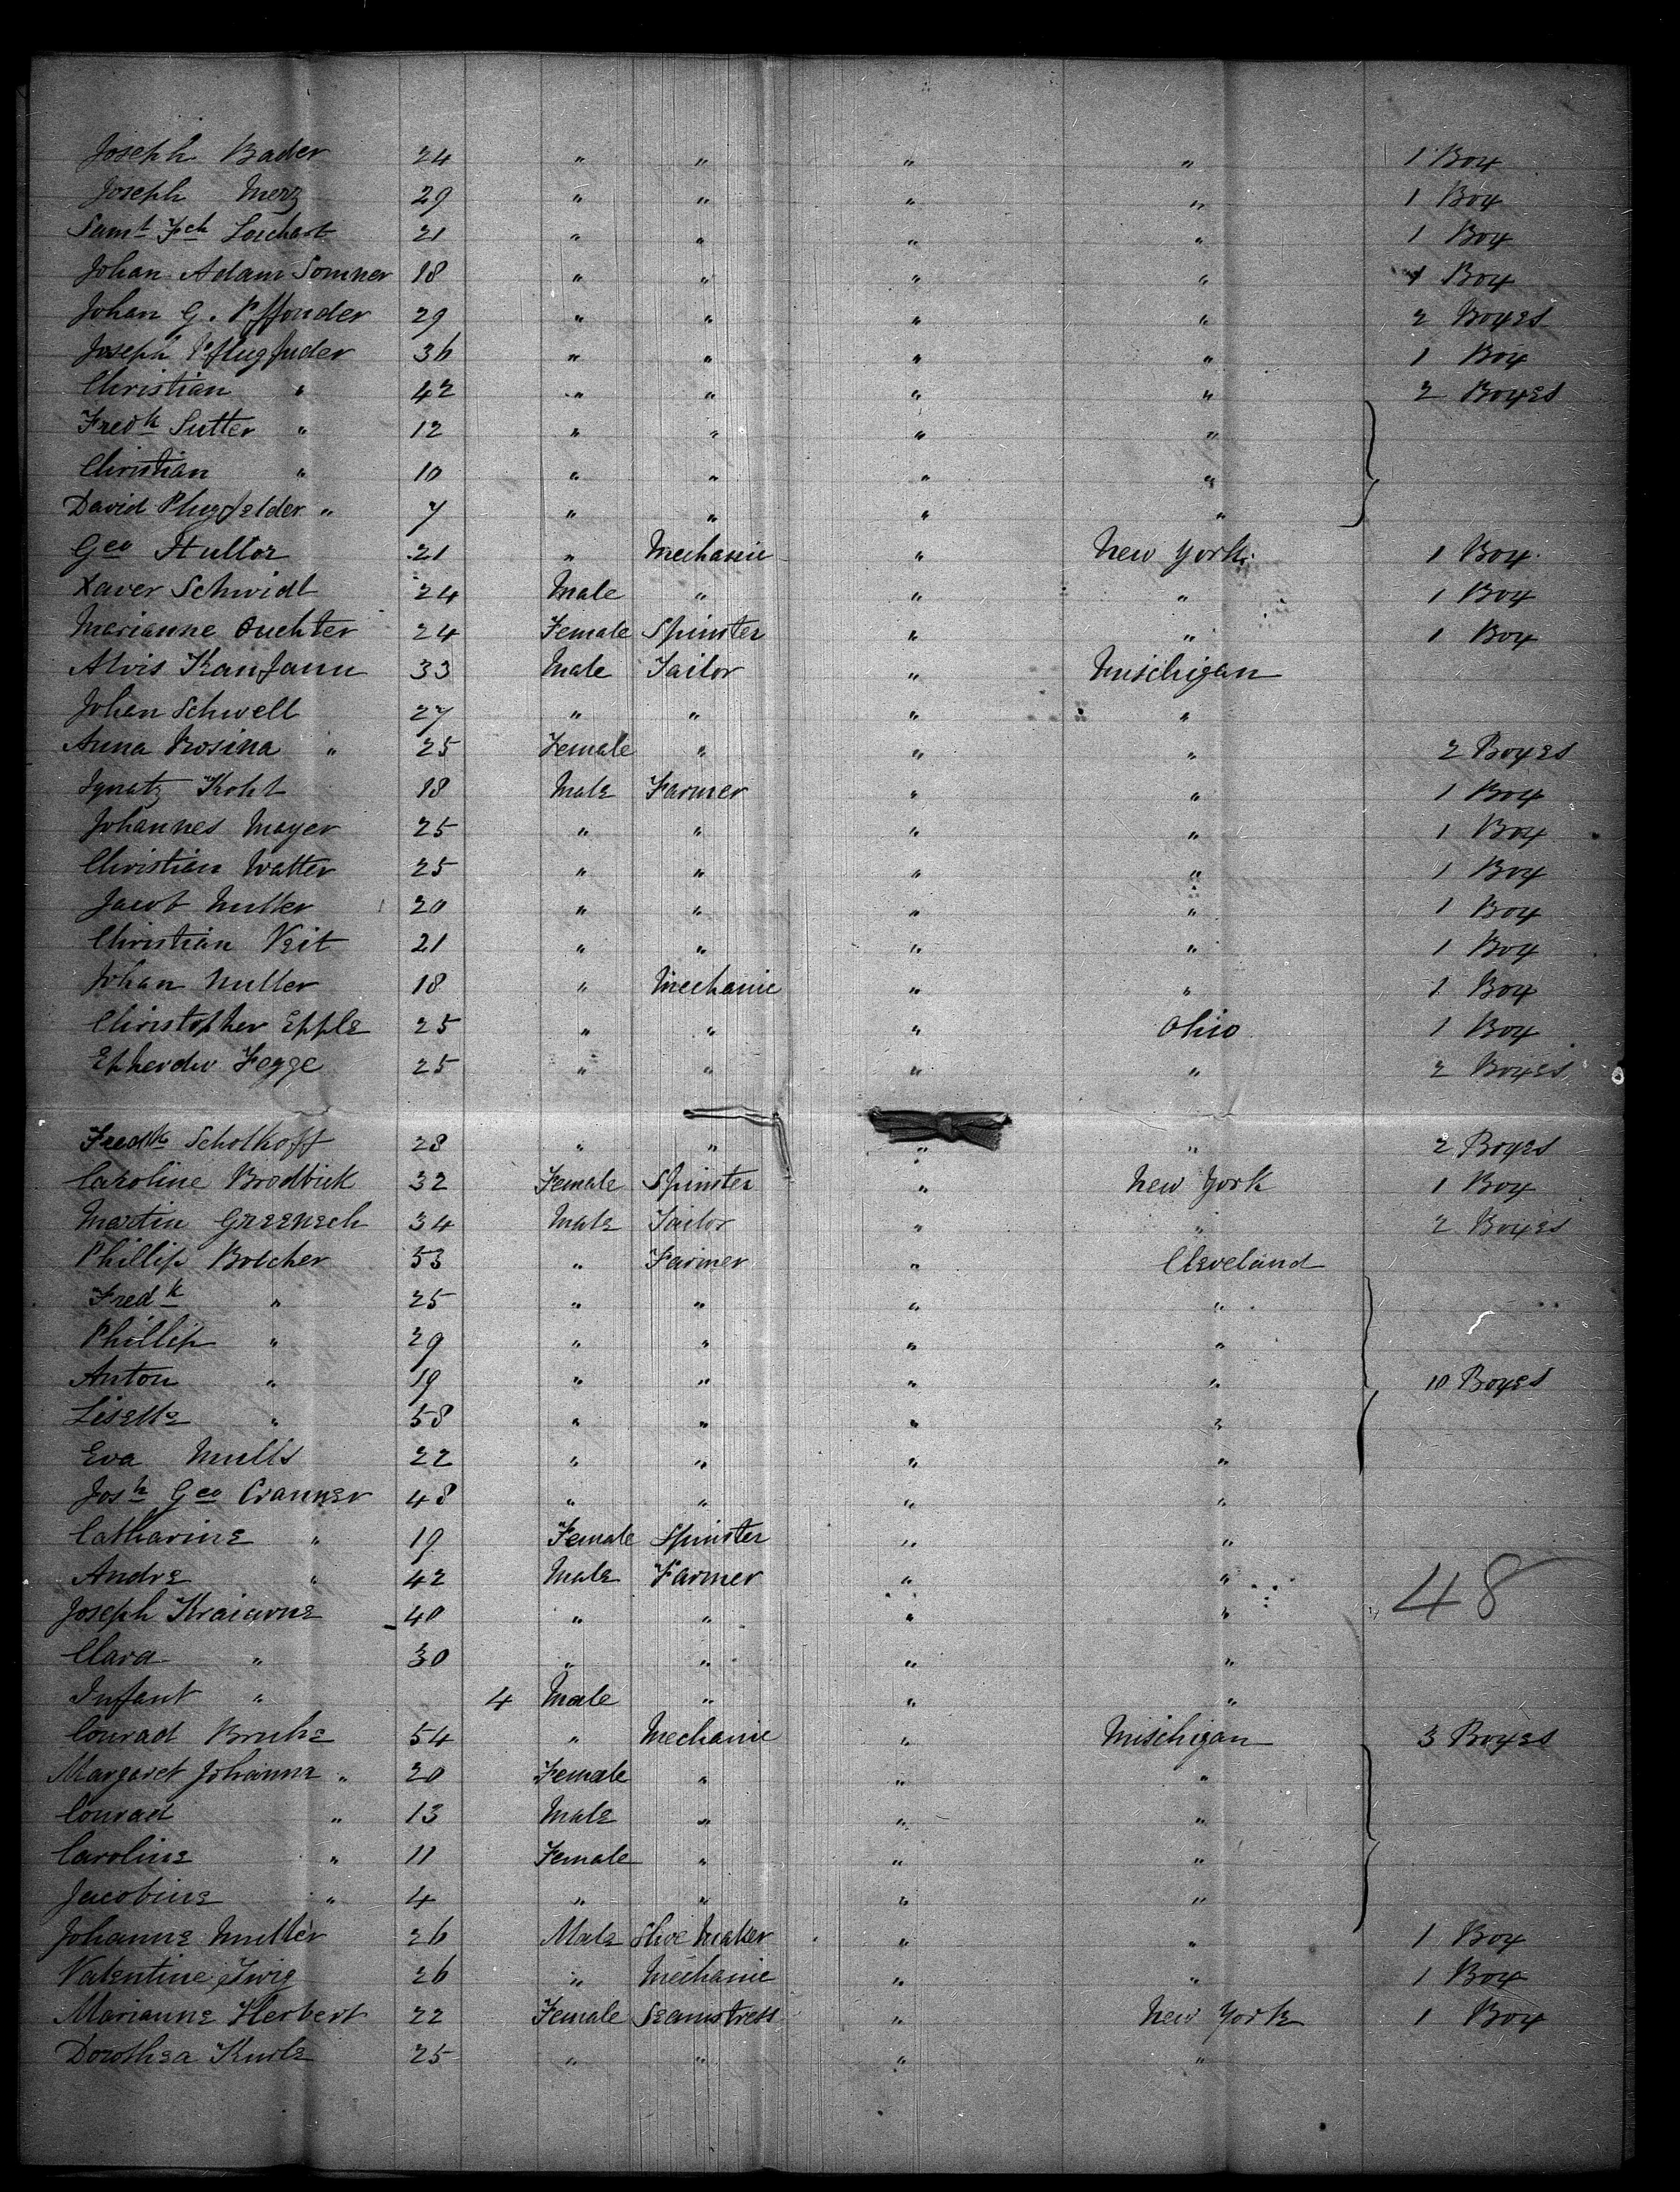 Joseph Bader 24 " " " " 1 Box
Joseph Merz 29 " " " " 1 Box
Saml Fch 21 " " " " 1 Box
Johan Adam Somner 18 " " " " 1 Box
Johan G. Pffonder 29 " " " " 2 Boxes
Joseph Pflugfuder 36 " " " " 1 Box
Christian " 42 " " " " 2 Boxes
Fredk Sutter " 12 " " " "
Christian " 10 " " " "
David Plugfelder " 7 " " " "
Geo 21 " Mechanic " New York 1 Box
Xaver Schmidt 24 Male " " " 1 Box
Marianne 24 Female Spinster " " 1 Box
Alvis Kaufann 33 Male Tailor " Mischigan
Johan Schwell 27 " " " "
Anna Rosina " 25 Female " " " 2 Boxes
Ignatz Kohl 18 Male Farmer " " 1 Box
Johannes Mayer 25 " " " " 1 Box
Christian Watter 25 " " " " 1 Box
Jacob Muller 20 " " " " 1 Box
Christian Veit 21 " " " " 1 Box
Johan Muller 18 " Mechanic " " 1 Box
Christopher Epple 25 " " " Ohio 1 Box
Fegge 25 " " " " 2 Boxes
Fredk Scholkoff 28 " " " " 2 Boxes
Caroline Brodbick 32 Female Spinster " New York 1 Box
Martin Greenech 34 Male Tailor " " 2 Boxes
Phillip Botcher 53 " Farmer " Cleveland
Fredk " 25 " " " "
Phillip " 29 " " " "
Anton " 19 " " " " 10 Boxes
Lisette " 58 " " " "
Eva Mulls 22 " " " "
Josh Geo Cranner 48 " " " "
Catharine " 19 Female Spinster " "
Andre " 42 Male Farmer " "
48
Joseph Kraiavne 40 " " " "
Clara " 30 " " " "
Infant " 4 Male " " "
Conrad Bruhe 54 " Mechanic " Mischigan 3 Boxes
Margaret Johanna " 20 Female " " "
Conrad " 13 Male " " "
Caroline " 11 Female " " "
Jacobine " 4 " " " "
Johanne Muller 26 Male Shoe Maker " " 1 Box
Valentine Twig 26 " Mechanic " " 1 Box
Marianne Herbert 22 Female Seamstress " New York 1 Box
Dorothea Kurle 25 " " " "